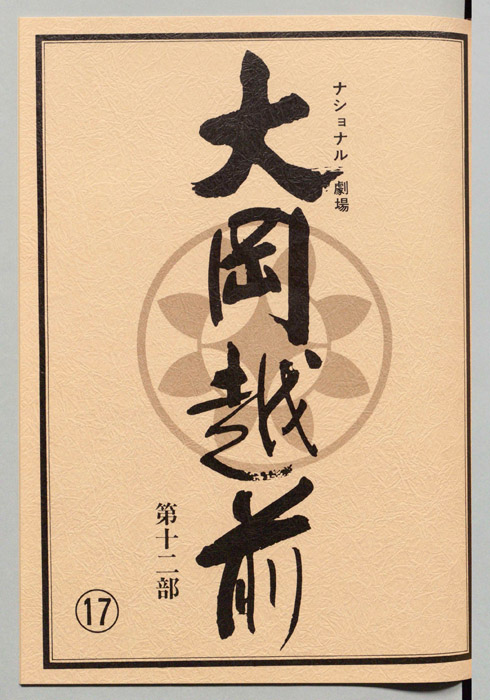 ナショナル劇場
大岡越前
第十二部
17